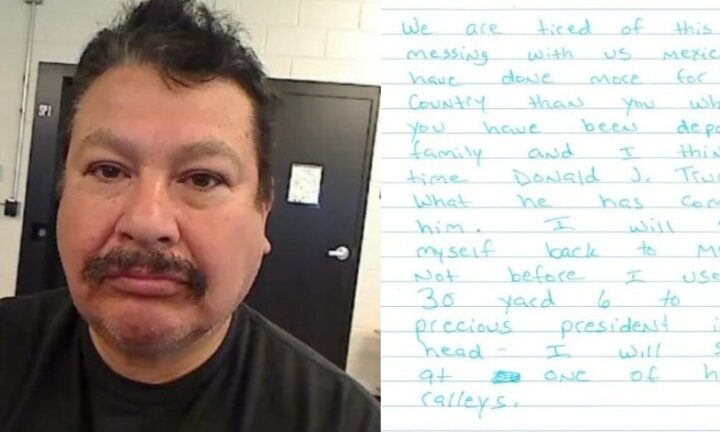 SP1
We are tired of this
messing with us Mexic
have done more for
Country than you wh
you have been depo
family and I thin
time Donald J. Tru
What he has com
him. I will
myself back to M
Not before I use
30 yard 6 to
precious president i
head - I will S
at one of h
ralleys.